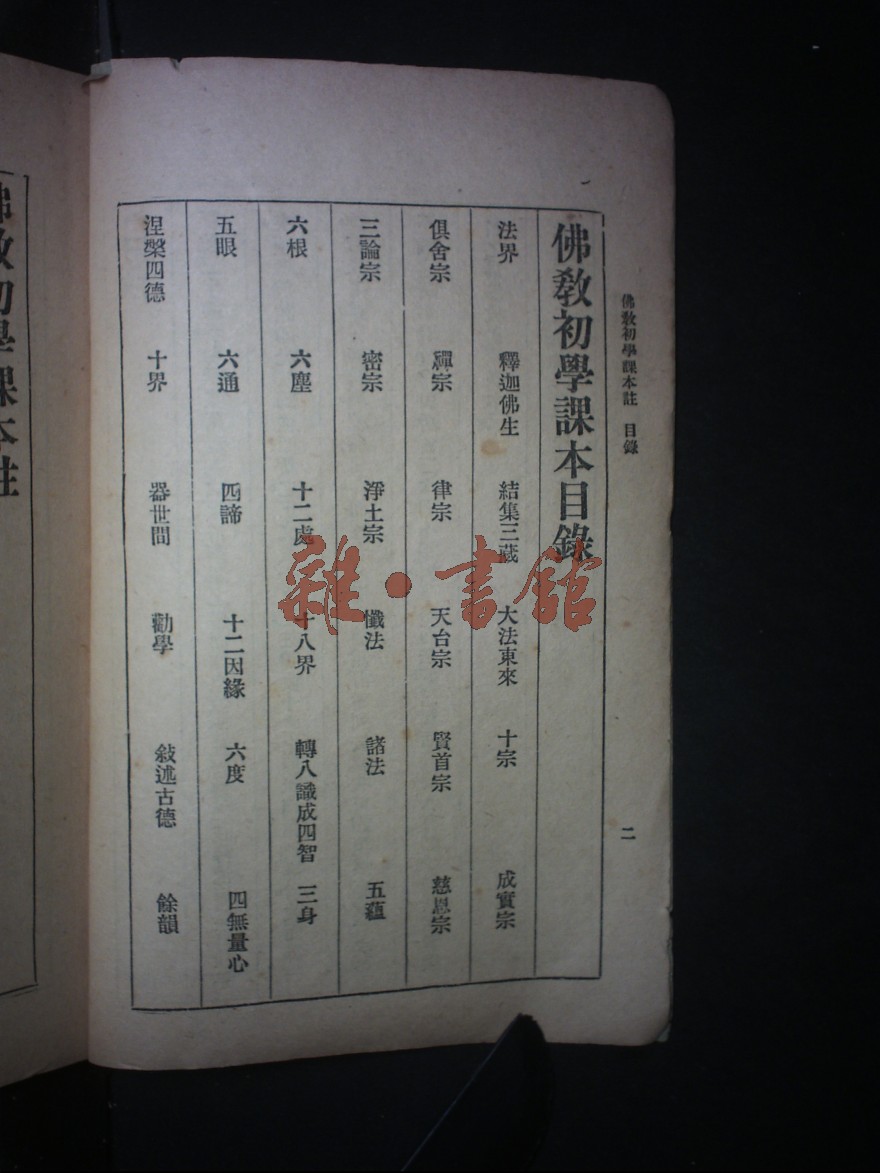 佛教初學課本註　目錄
二
佛教初學課本目錄
法界　釋迦佛生　結集三藏　大法東來　十宗　成實宗
俱舍宗　禪宗　律宗　天台宗　賢首宗　慈恩宗
三論宗　密宗　淨土宗　懺法　諸法　五蘊
六根　六塵　十二處　十八界　轉八識成四智　三身
五眼　六通　四諦　十二因緣　六度　四無量心
涅槃四德　十界　器世間　勸學　敍述古德　餘韻
佛教初學課本註
雜·書館